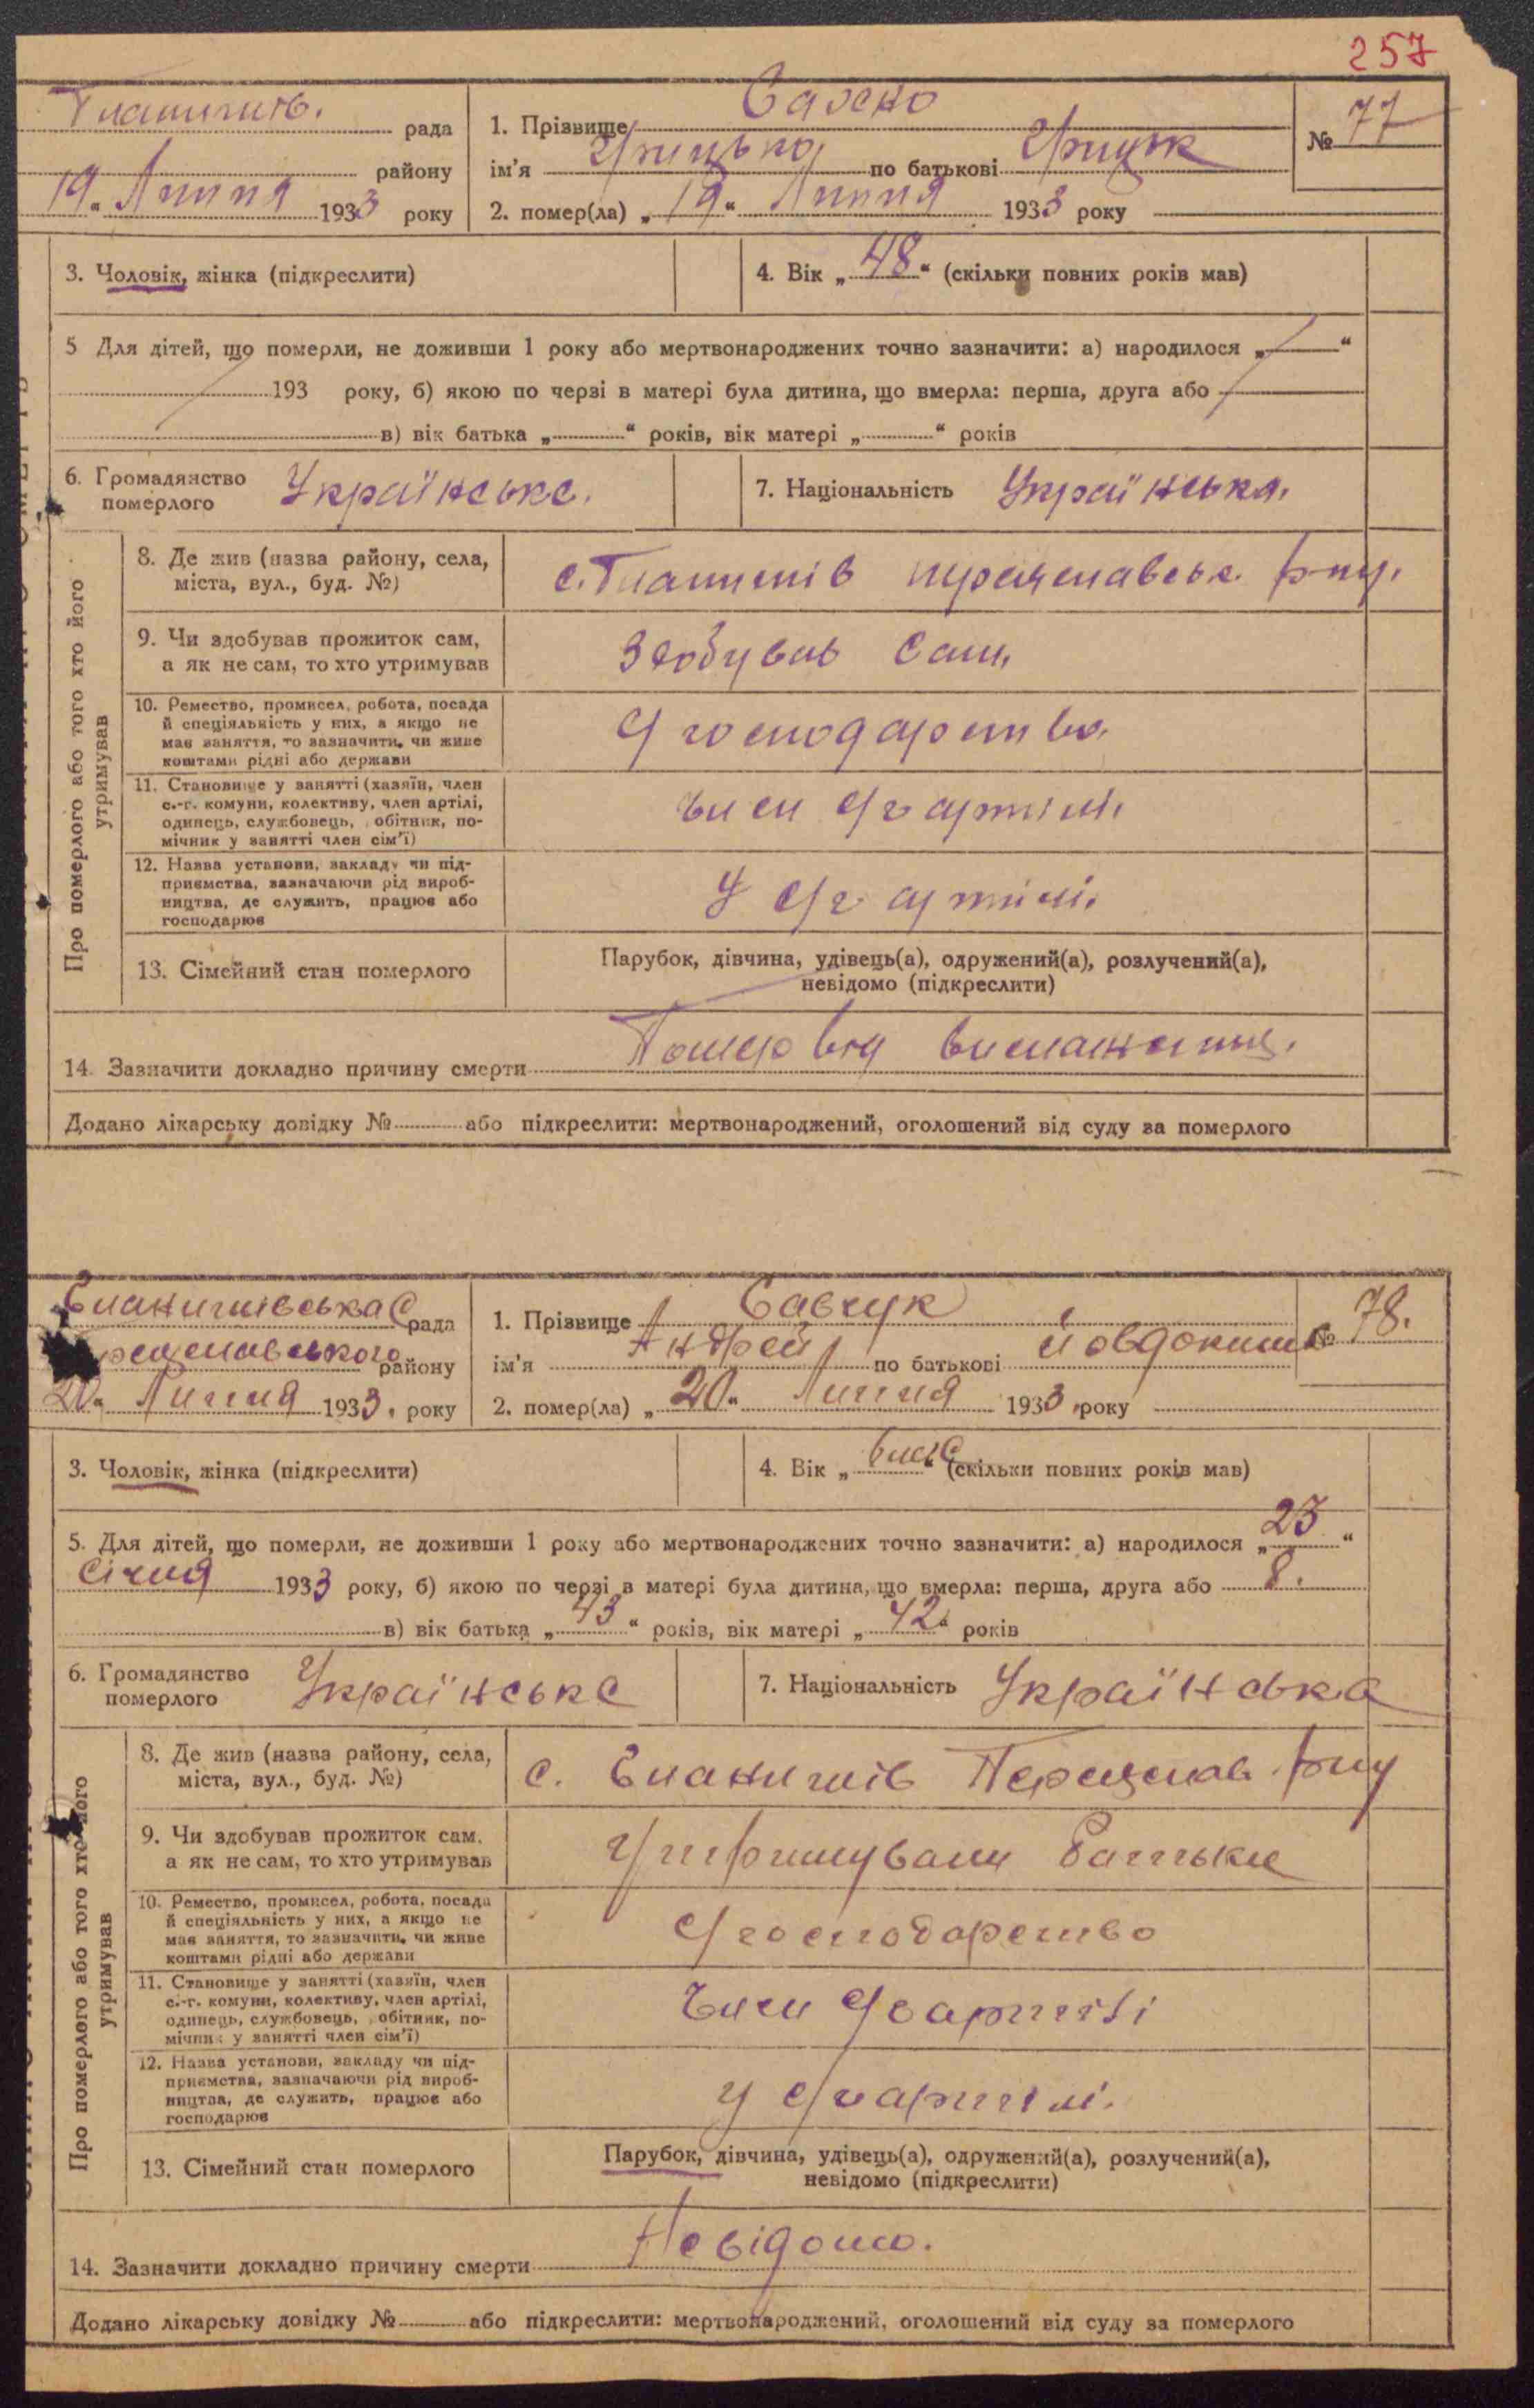 257
рада
району
19 " Липня 1933 року
1. Прізвище
ім'я Грицько по батькові
2. помер(ла) „ 19 " Липня 1933 року
№ 77
3. Чоловік, жінка (підкреслити)
4. Вік „ 48 " (скільки повних років мав)
5 Для дітей, що померли, не доживши 1 року або мертвонароджених точно зазначити: а) народилося „ "
193 року, б) якою по черзі в матері була дитина, що вмерла: перша, друга або
в) вік батька „ " років, вік матері „ " років
6. Громадянство
померлого
Українське.
7. Національність Українська.
Про померлого або того хто його
утримував
8. Де жив (назва району, села,
міста, вул., буд. №)
9. Чи здобував прожиток сам,
а як не сам, то хто утримував
Здобував Сам,
10. Ремество, промисел, робота, посада
й спеціяльність у них, а якщо не
має заняття, то зазначити, чи живе
коштами рідні або держави
С/господарство.
11. Становище у занятті (хазяїн, член
с.-г. комуни, колективу, член артілі,
одинець, службовець, обітник, по-
мічник у занятті член сім'ї)
Член с/г артілі.
12. Назва установи, закладу чи під-
приємства, зазначаючи рід вироб-
ництва, де служить, працює або
господарює
У с/г артілі.
13. Сімейний стан померлого
Парубок, дівчина, удівець(а), одружений(а), розлучений(а),
невідомо (підкреслити)
14. Зазначити докладно причину смерти Помер від
Додано лікарську довідку № або підкреслити: мертвонароджений, оголошений від суду за померлого
рада
району
20 " Липня 1933. року
1. Прізвище Савчук
ім'я Андрей по батькові
2. помер(ла) „ 20 " Липня 1933 року
№ 78.
3. Чоловік, жінка (підкреслити)
4. Вік „ " (скільки повних років мав)
5. Для дітей, що померли, не доживши 1 року або мертвонароджених точно зазначити: а) народилося „ 23 "
Січня 1933 року, б) якою по черзі в матері була дитина, що вмерла: перша, друга або 8.
в) вік батька „ 43 " років, вік матері „ 42 " років
6. Громадянство
померлого
Українське
7. Національність Українська
Про померлого або того хто його
утримував
8. Де жив (назва району, села,
міста, вул., буд. №)
9. Чи здобував прожиток сам,
а як не сам, то хто утримував
Утримували Батьки
10. Ремество, промисел, робота, посада
й спеціяльність у них, а якщо не
має заняття, то зазначити, чи живе
коштами рідні або держави
С/господарство
11. Становище у занятті (хазяїн, член
с.-г. комуни, колективу, член артілі,
одинець, службовець, обітник, по-
мічник у занятті член сім'ї)
Член с/г артілі
12. Назва установи, закладу чи під-
приємства, зазначаючи рід вироб-
ництва, де служить, працює або
господарює
у с/г артілі.
13. Сімейний стан померлого
Парубок, дівчина, удівець(а), одружений(а), розлучений(а),
невідомо (підкреслити)
14. Зазначити докладно причину смерти Невідомо.
Додано лікарську довідку № або підкреслити: мертвонароджений, оголошений від суду за померлого